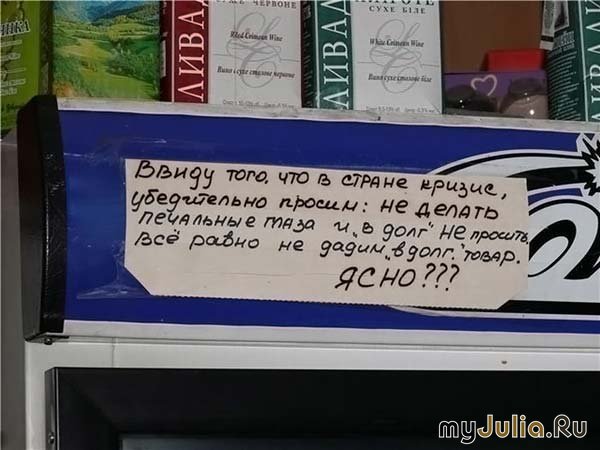 ЧНКА
ЛИВАД
СУХЕ ЧЕРВОНЕ
Red Crimean Wine
Вино сухе столове червоне
ЛИВАД
СУХЕ БІЛЕ
White Crimean Wine
Вино сухе столове біле
Ввиду того, что в стране кризис,
убедительно просим: не делать
печальные глаза и „в долг" не просить.
Всё равно не дадим „в долг." товар.
ЯСНО???
myJulia.Ru